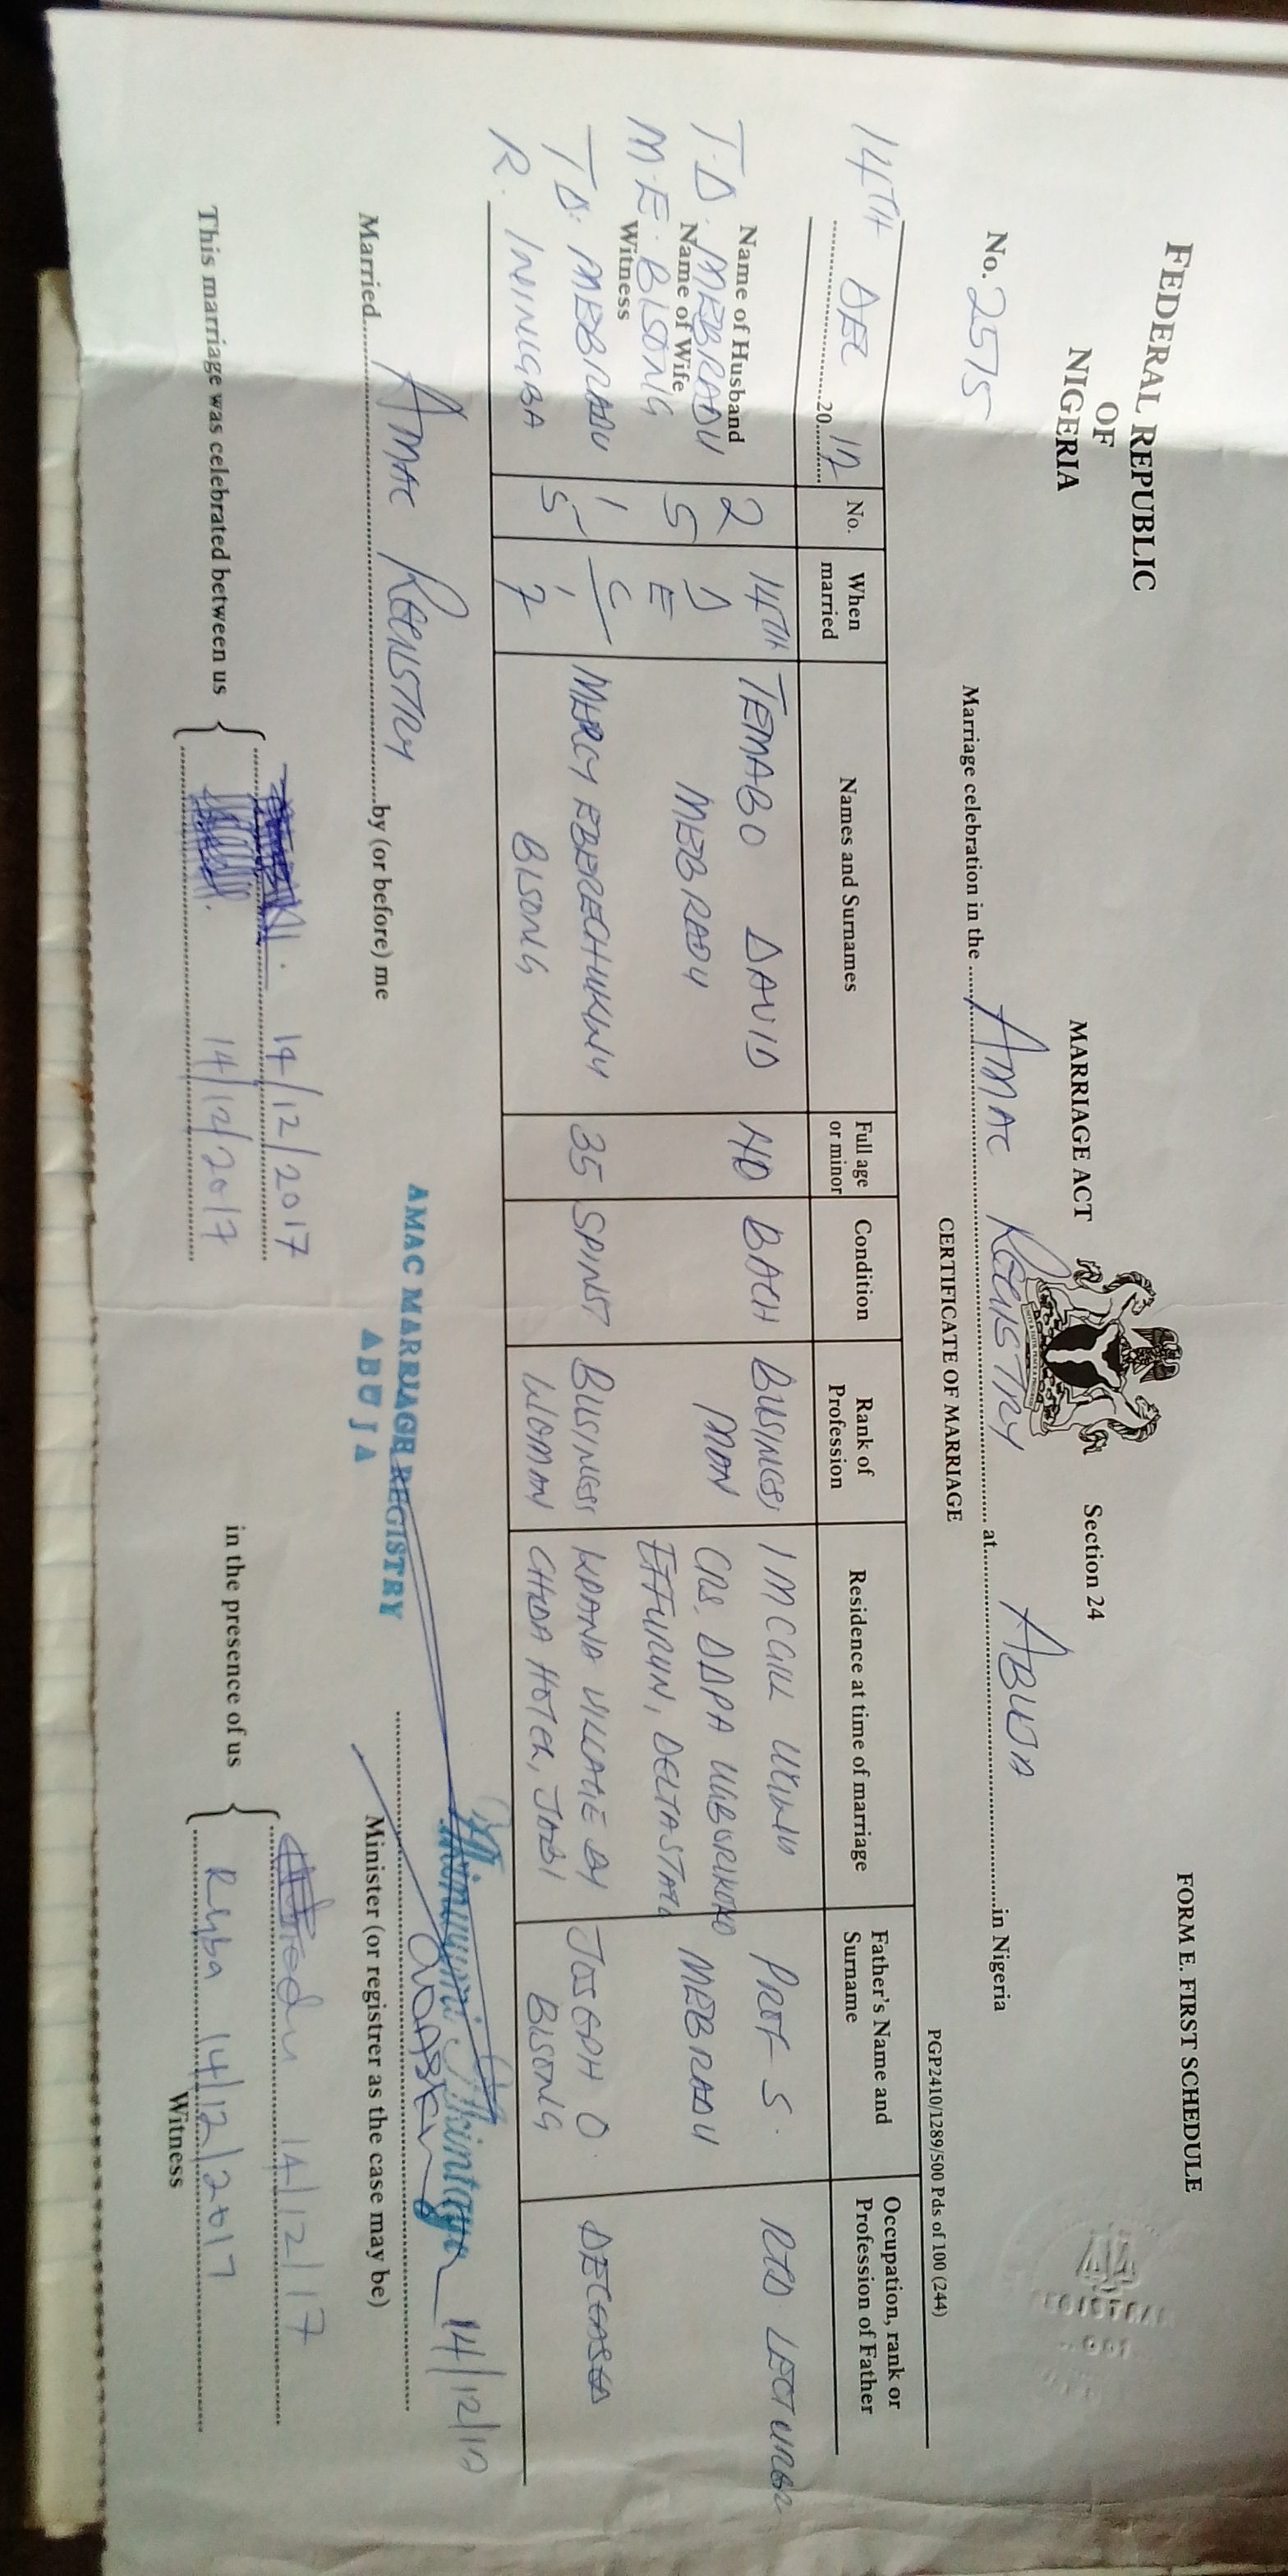 FORM E. FIRST SCHEDULE
FEDERAL REPUBLIC
OF
NIGERIA
MARRIAGE ACT
Section 24
No. 2575
Marriage celebration in the AMAC REGISTRY at ABUJA in Nigeria
CERTIFICATE OF MARRIAGE
PGP2410/1289/500 Pds of 100 (244)
14TH DEC 2017
No.
When married
Names and Surnames
Full age or minor
Condition
Rank of Profession
Residence at time of marriage
Father's Name and Surname
Occupation, rank or Profession of Father
Name of Husband
T.D. MEBRADU
Name of Wife
M.E. BISONG
Witness
T.D. MEBRADU
R.
2575
14TH DEC 17
TEMABO DAVID
MEBRADU
40
BACH
BUSINESS
MAN
1 MCGILL
CRS, DDPA
EFFURUN, DELTA STATE
PROF S.
MEBRADU
RTD. LECTURER
MERCY EBERECHUKWU
BISONG
35
SPINST
BUSINESS
WOMAN
KPANA VILLAGE BY
CHIDA HOTEL, JABI
JOSEPH O.
BISONG
DECEASED
Married AMAC REGISTRY by (or before) me
AMAC MARRIAGE REGISTRY
ABUJA
14/12/17
Minister (or registrer as the case may be)
This marriage was celebrated between us
14/12/2017
14/12/2017
in the presence of us
14/12/17
14/12/2017
Witness